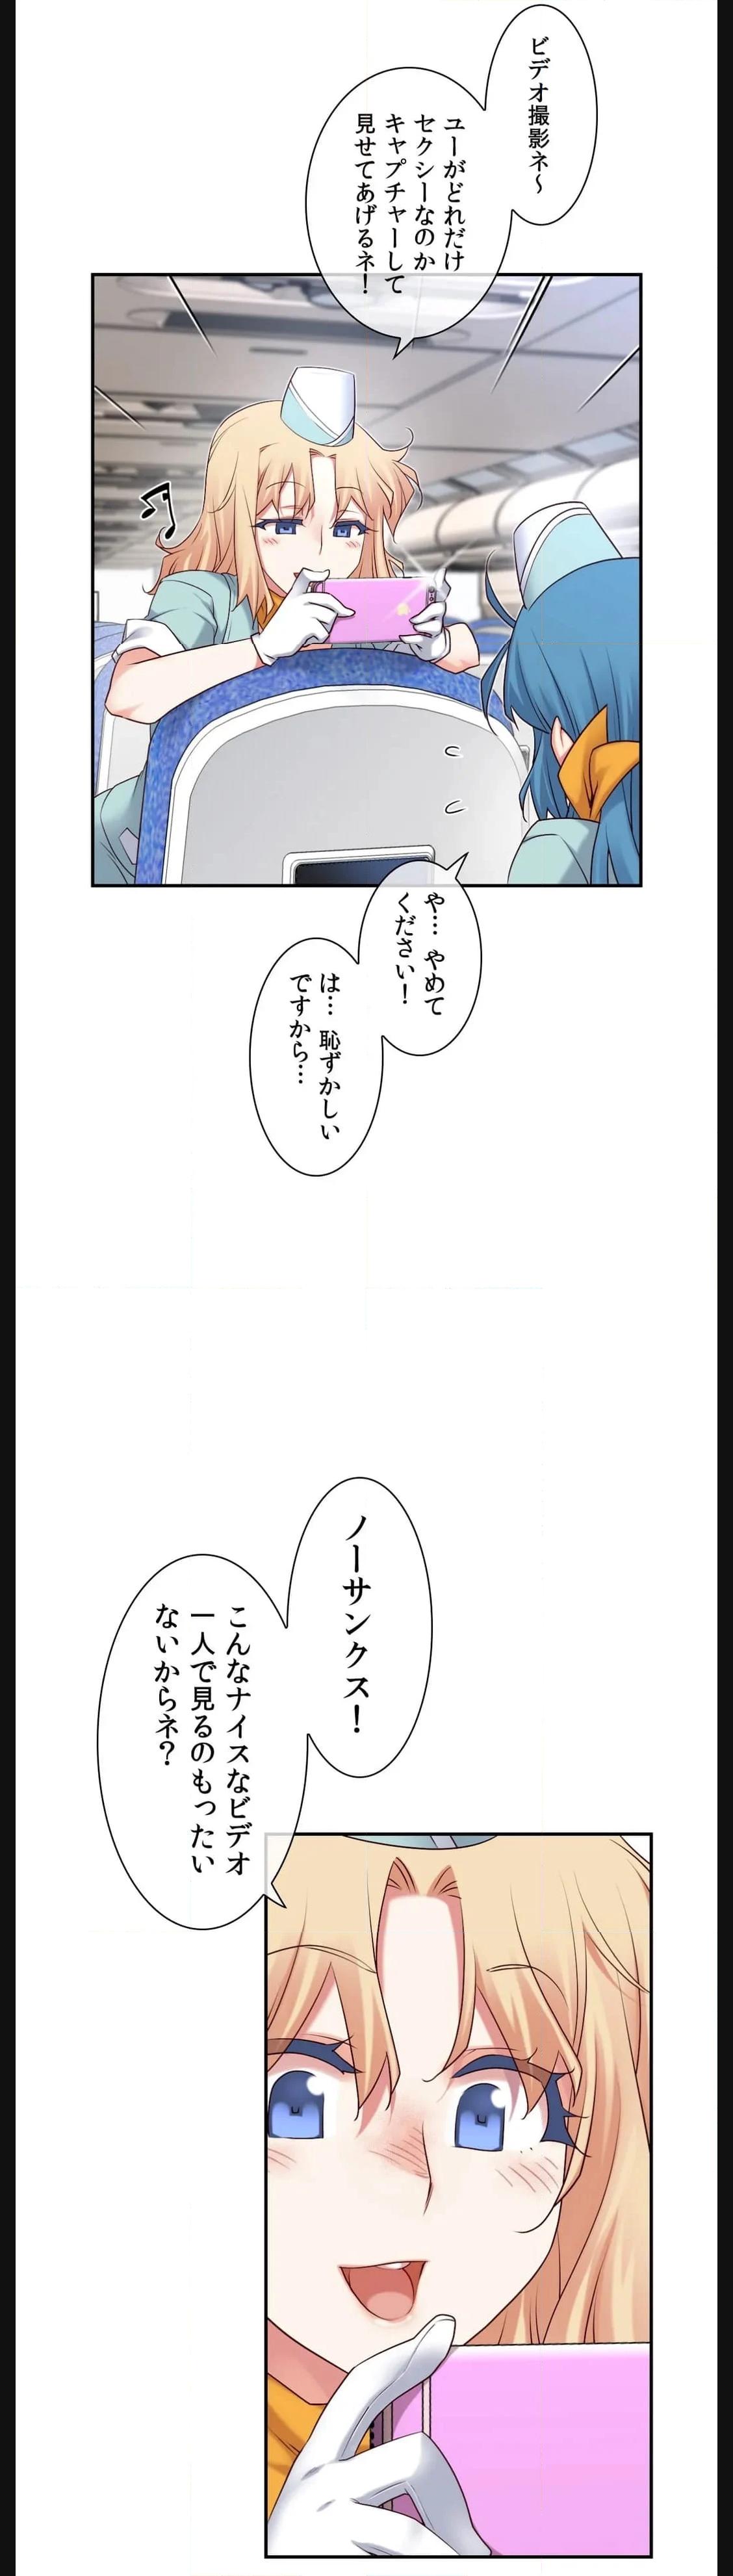 ビデオ撮影ネ〜
ユーがどれだけ
セクシーなのか
キャプチャーして
見せてあげるネ！
や… やめて
ください！
は… 恥ずかしい
ですから…
ノーサンクス！
こんなナイスなビデオ
一人で見るのもったい
ないからネ？